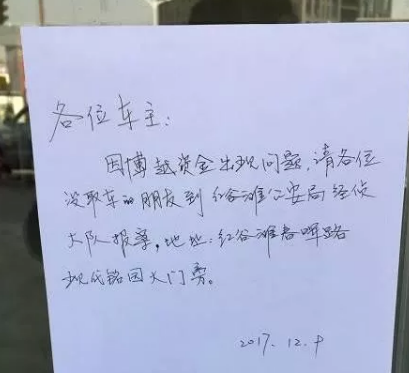 各位车主：
因博越资金出现问题，请各位
没取车的朋友到红谷滩公安局经侦
大队报案，地址：红谷滩春晖路
现代铭园大门旁。
2017.12.9